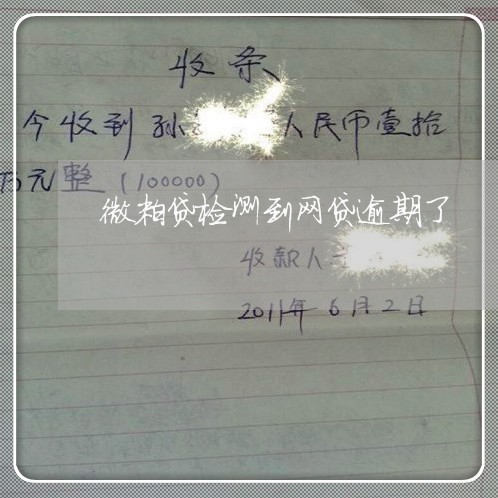 收条
今收到孙 人民币壹拾
万元整 (100000)
微粒贷检测到网贷逾期了
收款人
2011年6月2日